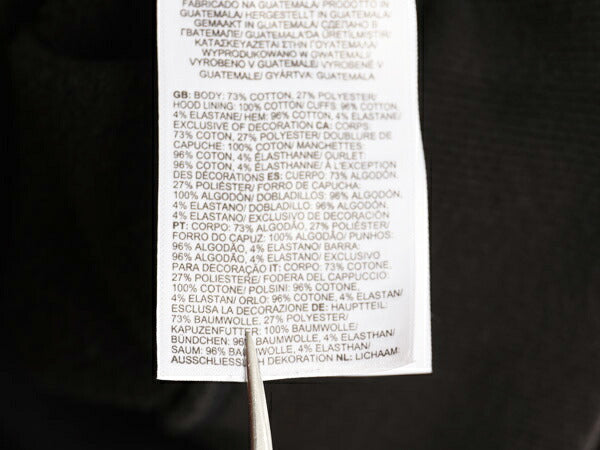 FABRICADO NA GUATEMALA/ PRODOTTO IN
GUATEMALA/ HERGESTELLT IN GUATEMALA/
GEMAAKT IN GUATEMALA/ СДЕЛАНО В
ГВАТЕМАЛЕ/ GUATEMALA'DA ÜRETİLMİŞTİR/
ΚΑΤΑΣΚΕΥΑΖΕΤΑΙ ΣΤΗΝ ΓΟΥΑΤΕΜΑΛΑ/
WYPRODUKOWANO W GWATEMALI/
VYROBENO V GUATEMALE/ VYROBENÉ V
GUATEMALE/ GYÁRTVA: GUATEMALA
GB: BODY: 73% COTTON, 27% POLYESTER/
HOOD LINING: 100% COTTON/ CUFFS: 96% COTTON,
4% ELASTANE/ HEM: 96% COTTON, 4% ELASTANE/
EXCLUSIVE OF DECORATION CA: CORPS:
73% COTON, 27% POLYESTER/ DOUBLURE DE
CAPUCHE: 100% COTON/ MANCHETTES:
96% COTON, 4% ÉLASTHANNE/ OURLET:
96% COTON, 4% ÉLASTHANNE/ À L'EXCEPTION
DES DÉCORATIONS ES: CUERPO: 73% ALGODÓN,
27% POLIÉSTER/ FORRO DE CAPUCHA:
100% ALGODÓN/ DOBLADILLOS: 96% ALGODÓN,
4% ELASTANO/ DOBLADILLO: 96% ALGODÓN,
4% ELASTANO/ EXCLUSIVO DE DECORACIÓN
PT: CORPO: 73% ALGODÃO, 27% POLIÉSTER/
FORRO DO CAPUZ: 100% ALGODÃO/ PUNHOS:
96% ALGODÃO, 4% ELASTANO/ BARRA:
96% ALGODÃO, 4% ELASTANO/ EXCLUSIVO
PARA DECORAÇÃO IT: CORPO: 73% COTONE,
27% POLIESTERE/ FODERA DEL CAPPUCCIO:
100% COTONE/ POLSINI: 96% COTONE,
4% ELASTAN/ ORLO: 96% COTONE, 4% ELASTAN/
ESCLUSA LA DECORAZIONE DE: HAUPTTEIL:
73% BAUMWOLLE, 27% POLYESTER/
KAPUZENFUTTER: 100% BAUMWOLLE/
BÜNDCHEN: 96% BAUMWOLLE, 4% ELASTHAN/
SAUM: 96% BAUMWOLLE, 4% ELASTHAN/
AUSSCHLIESSLICH DEKORATION NL: LICHAAM: